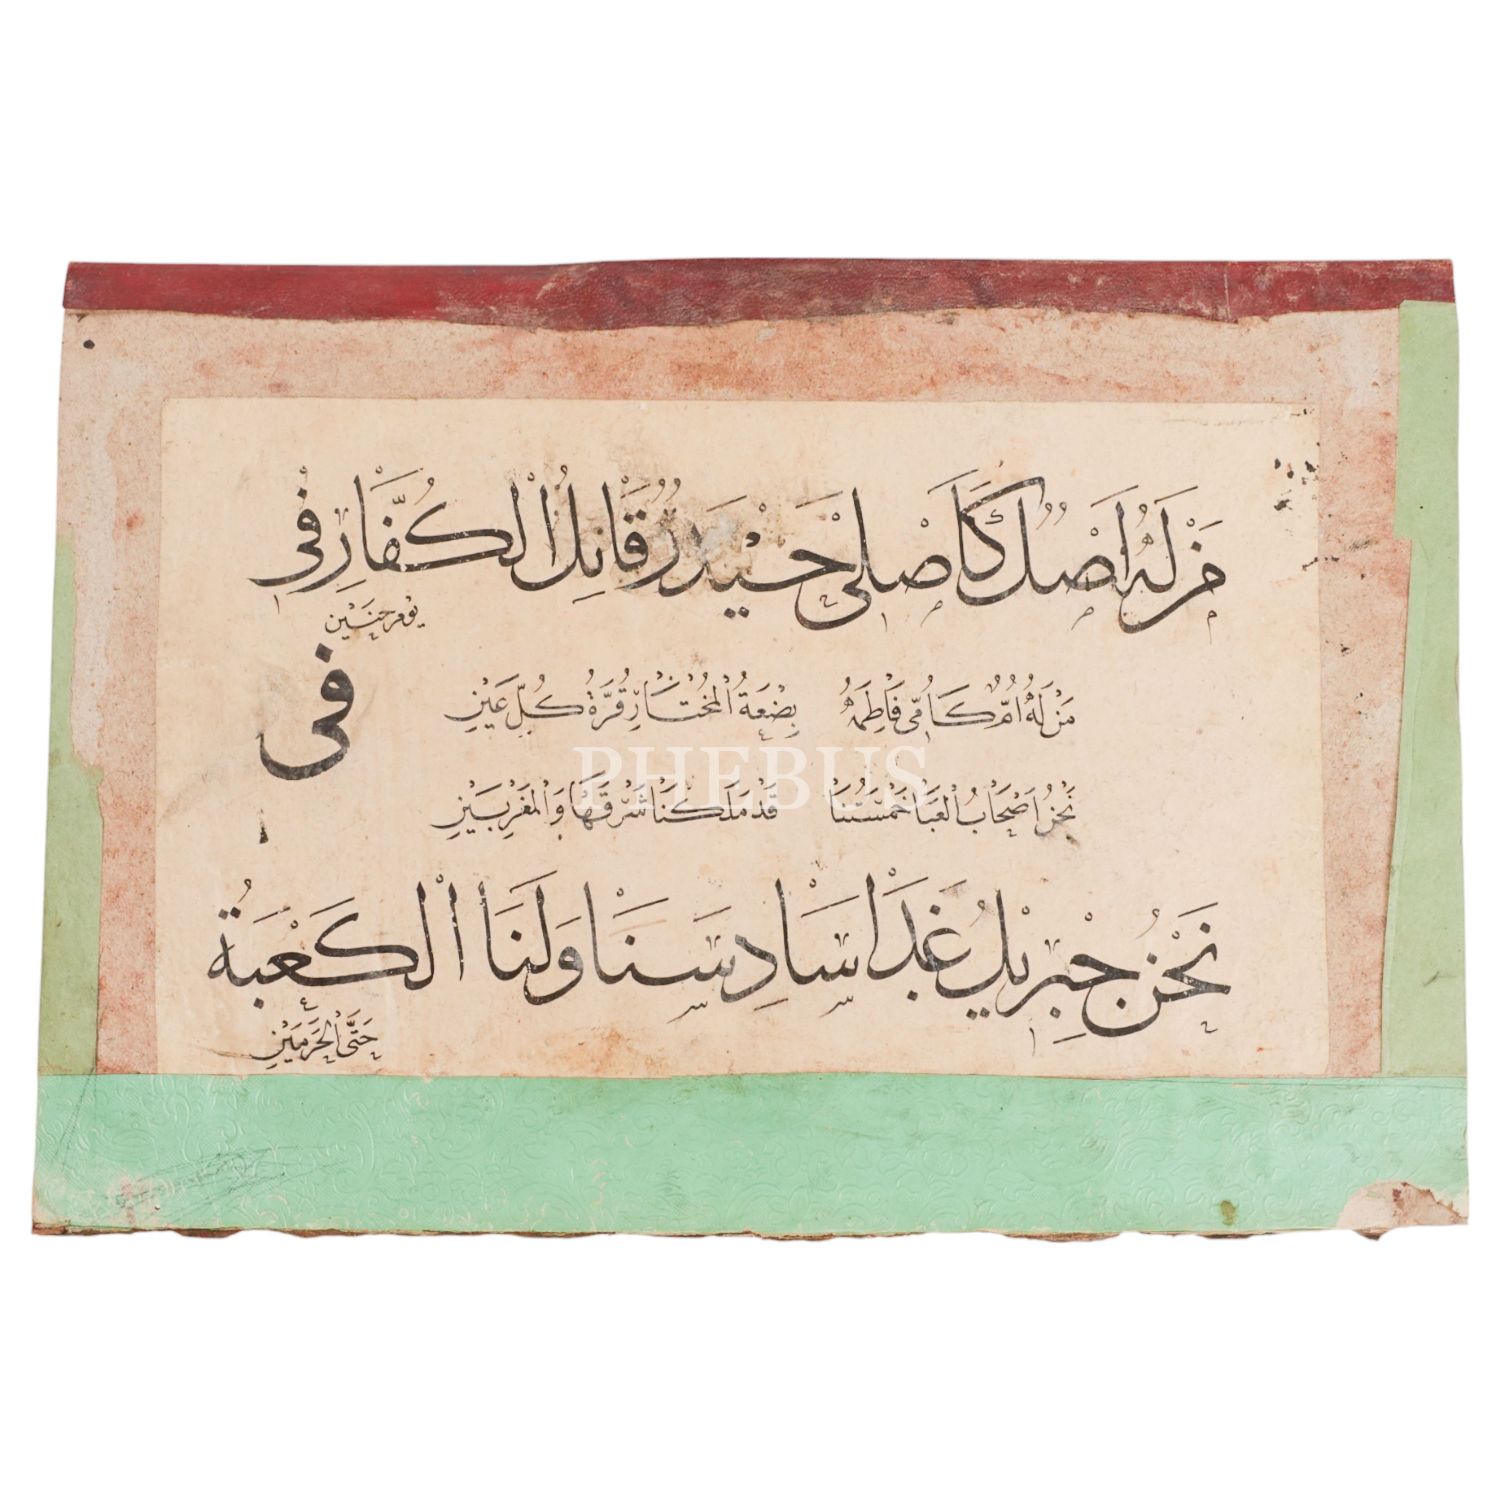 مَنْ لَهُ اَصْلٌ كَاَصْلِىْ حَيْدَرٌ قَاتِلُ الْكُفَّارِ فِى
يَوْمِ حُنَيْنِ
فى
مَنْ لَهُ اُمٌّ كَاُمِّى فَاطِمَةُ بِضْعَةُ الْمُخْتَارِ قُرَّةُ كُلِّ عَيْنِ
PHEBUS
نَحْنُ اَصْحَابُ الْعَبَا خَمْسَتُنَا قَدْ مَلَكْنَا شَرْقَهَا وَالْمَغْرِبَيْنِ
نَحْنُ جِبْرِيلُ غَدَا سَادِسَنَا وَلَنَا الْكَعْبَةُ
حَتَّى الْحَرَمَيْنِ